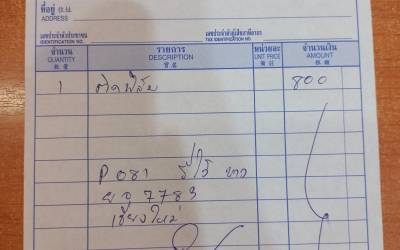 ที่อยู่
เลขประจำตัวประชาชน เลขประจำตัวผู้เสียภาษีอากร
IDENTIFICATION NO. TAX IDENTIFICATION NO.
จำนวน รายการ หน่วยละ จำนวนเงิน
QUANTITY DESCRIPTION UNIT PRICE AMOUNT
1 800
P 081 รีโว่ ขาว
7783
เชียงใหม่